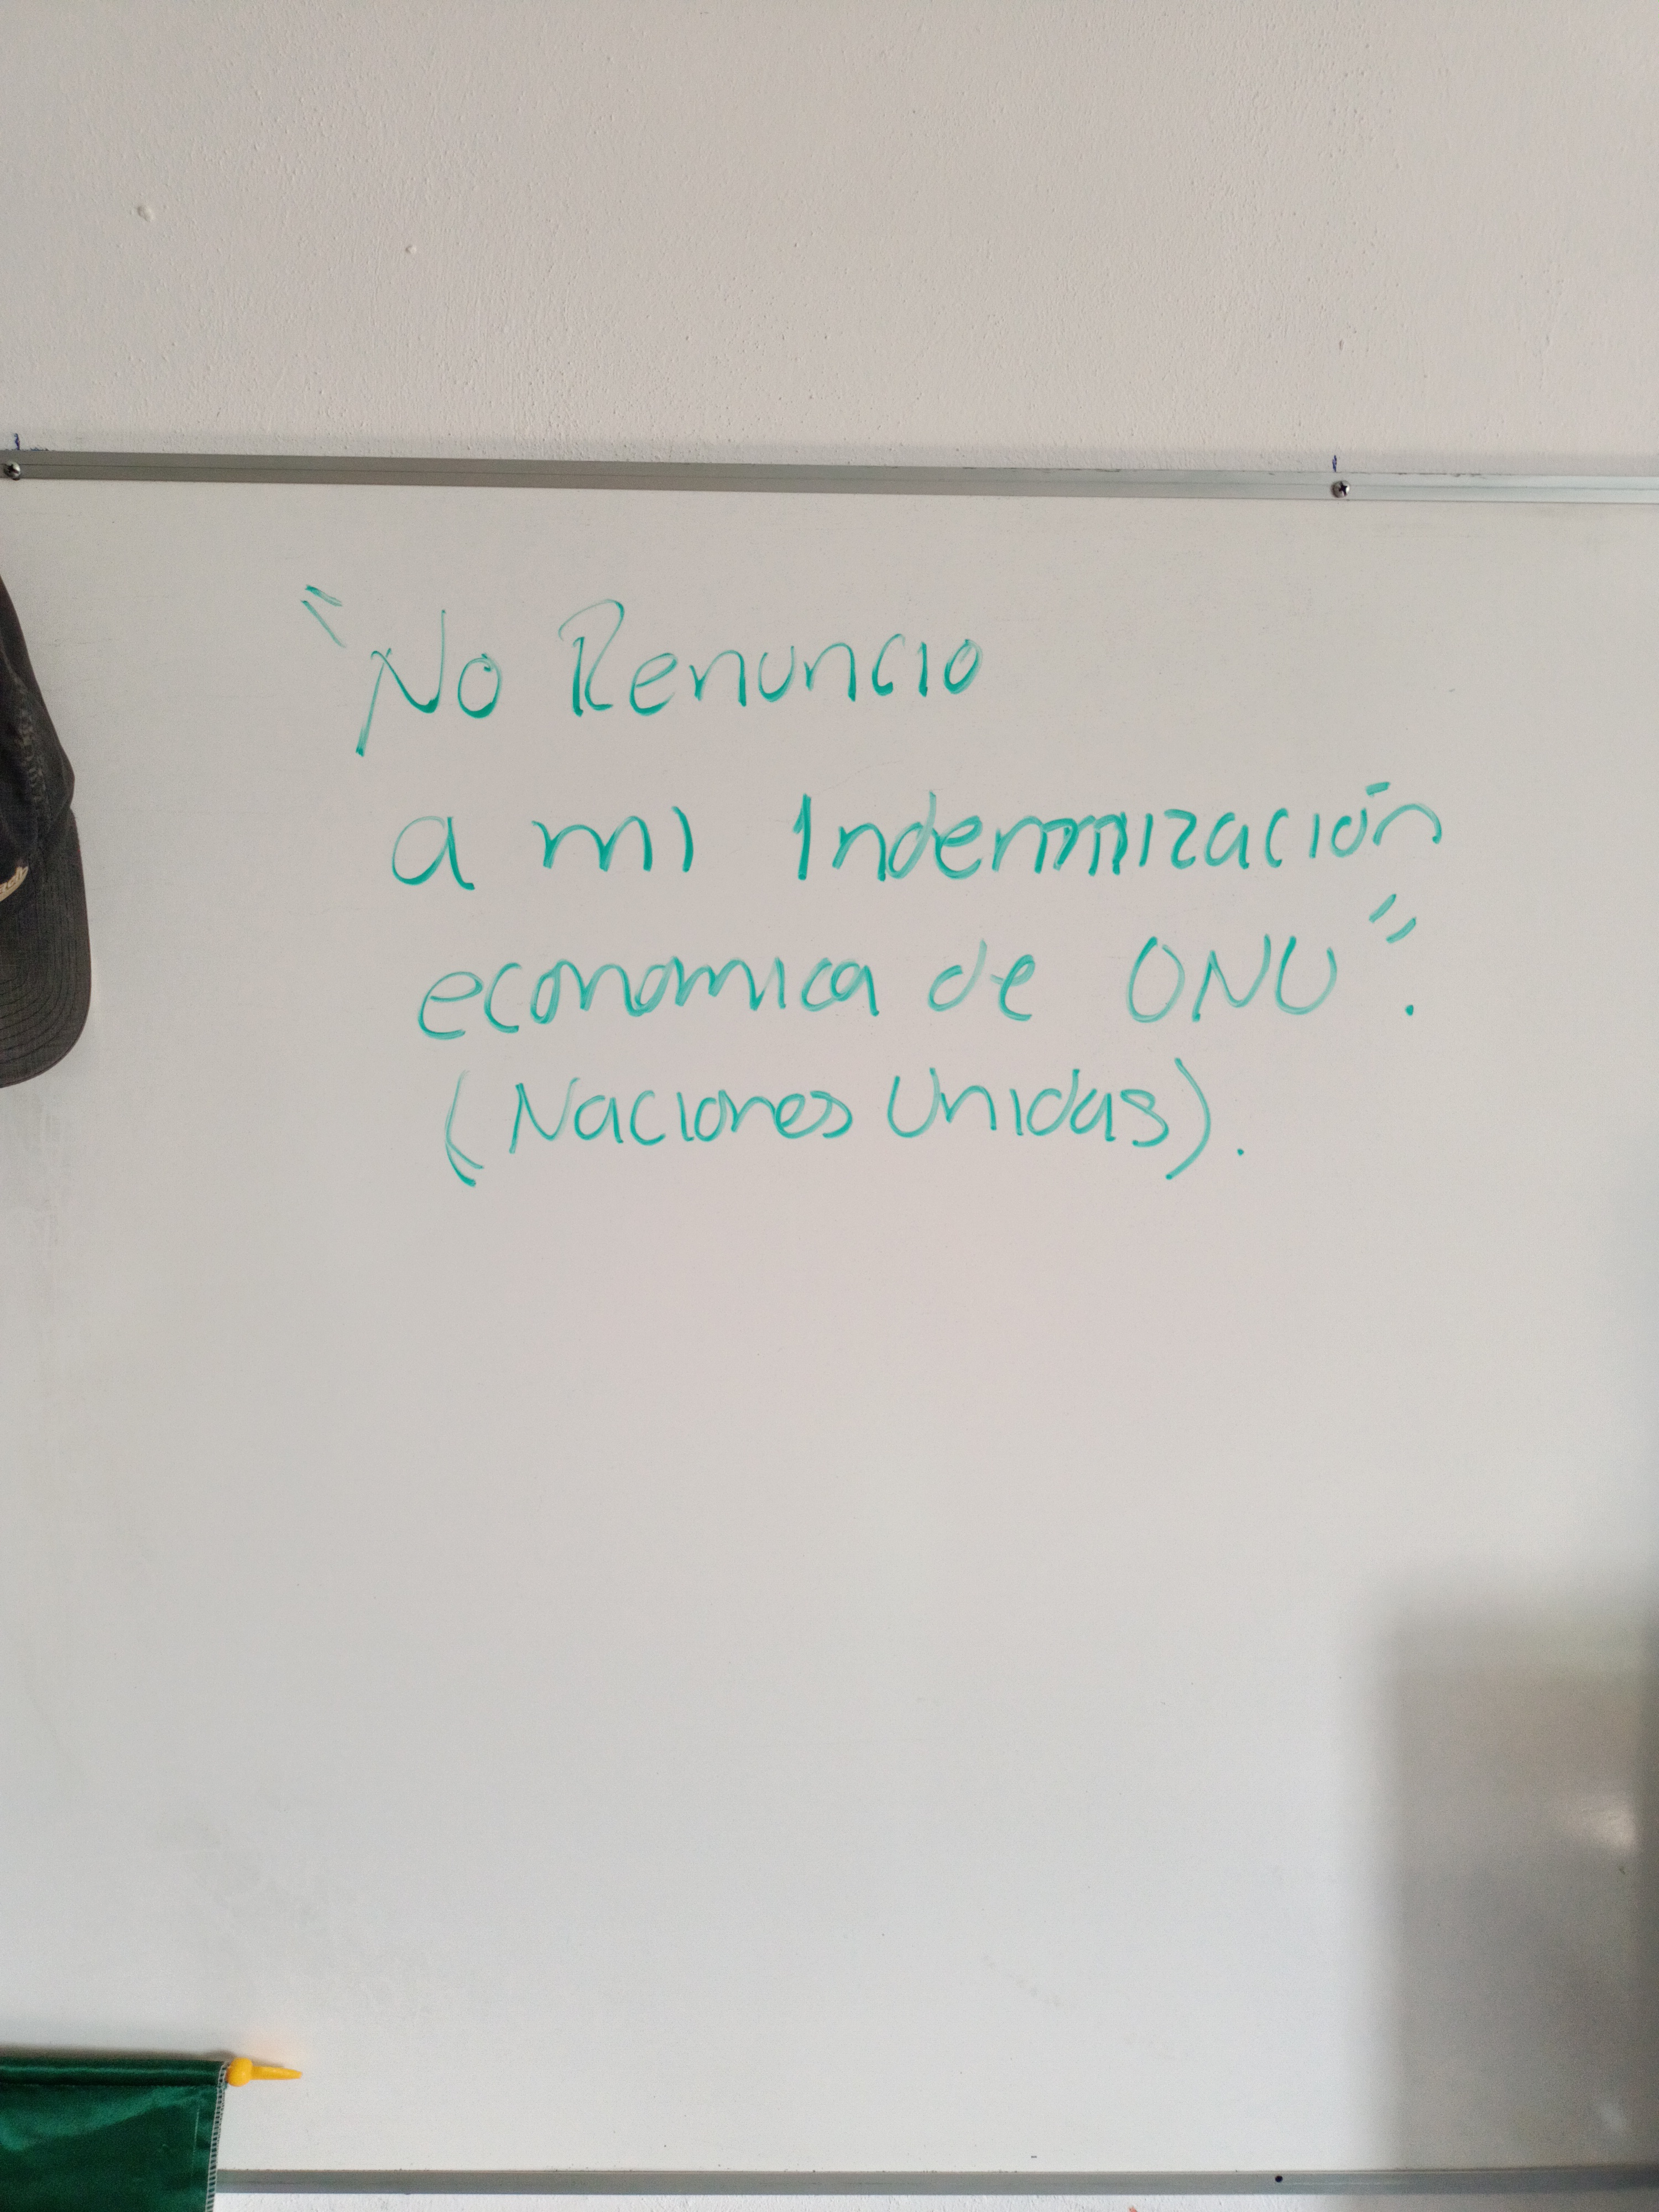 "No Renuncio
a mi Indemnización
economica de ONU".
(Naciones Unidas).